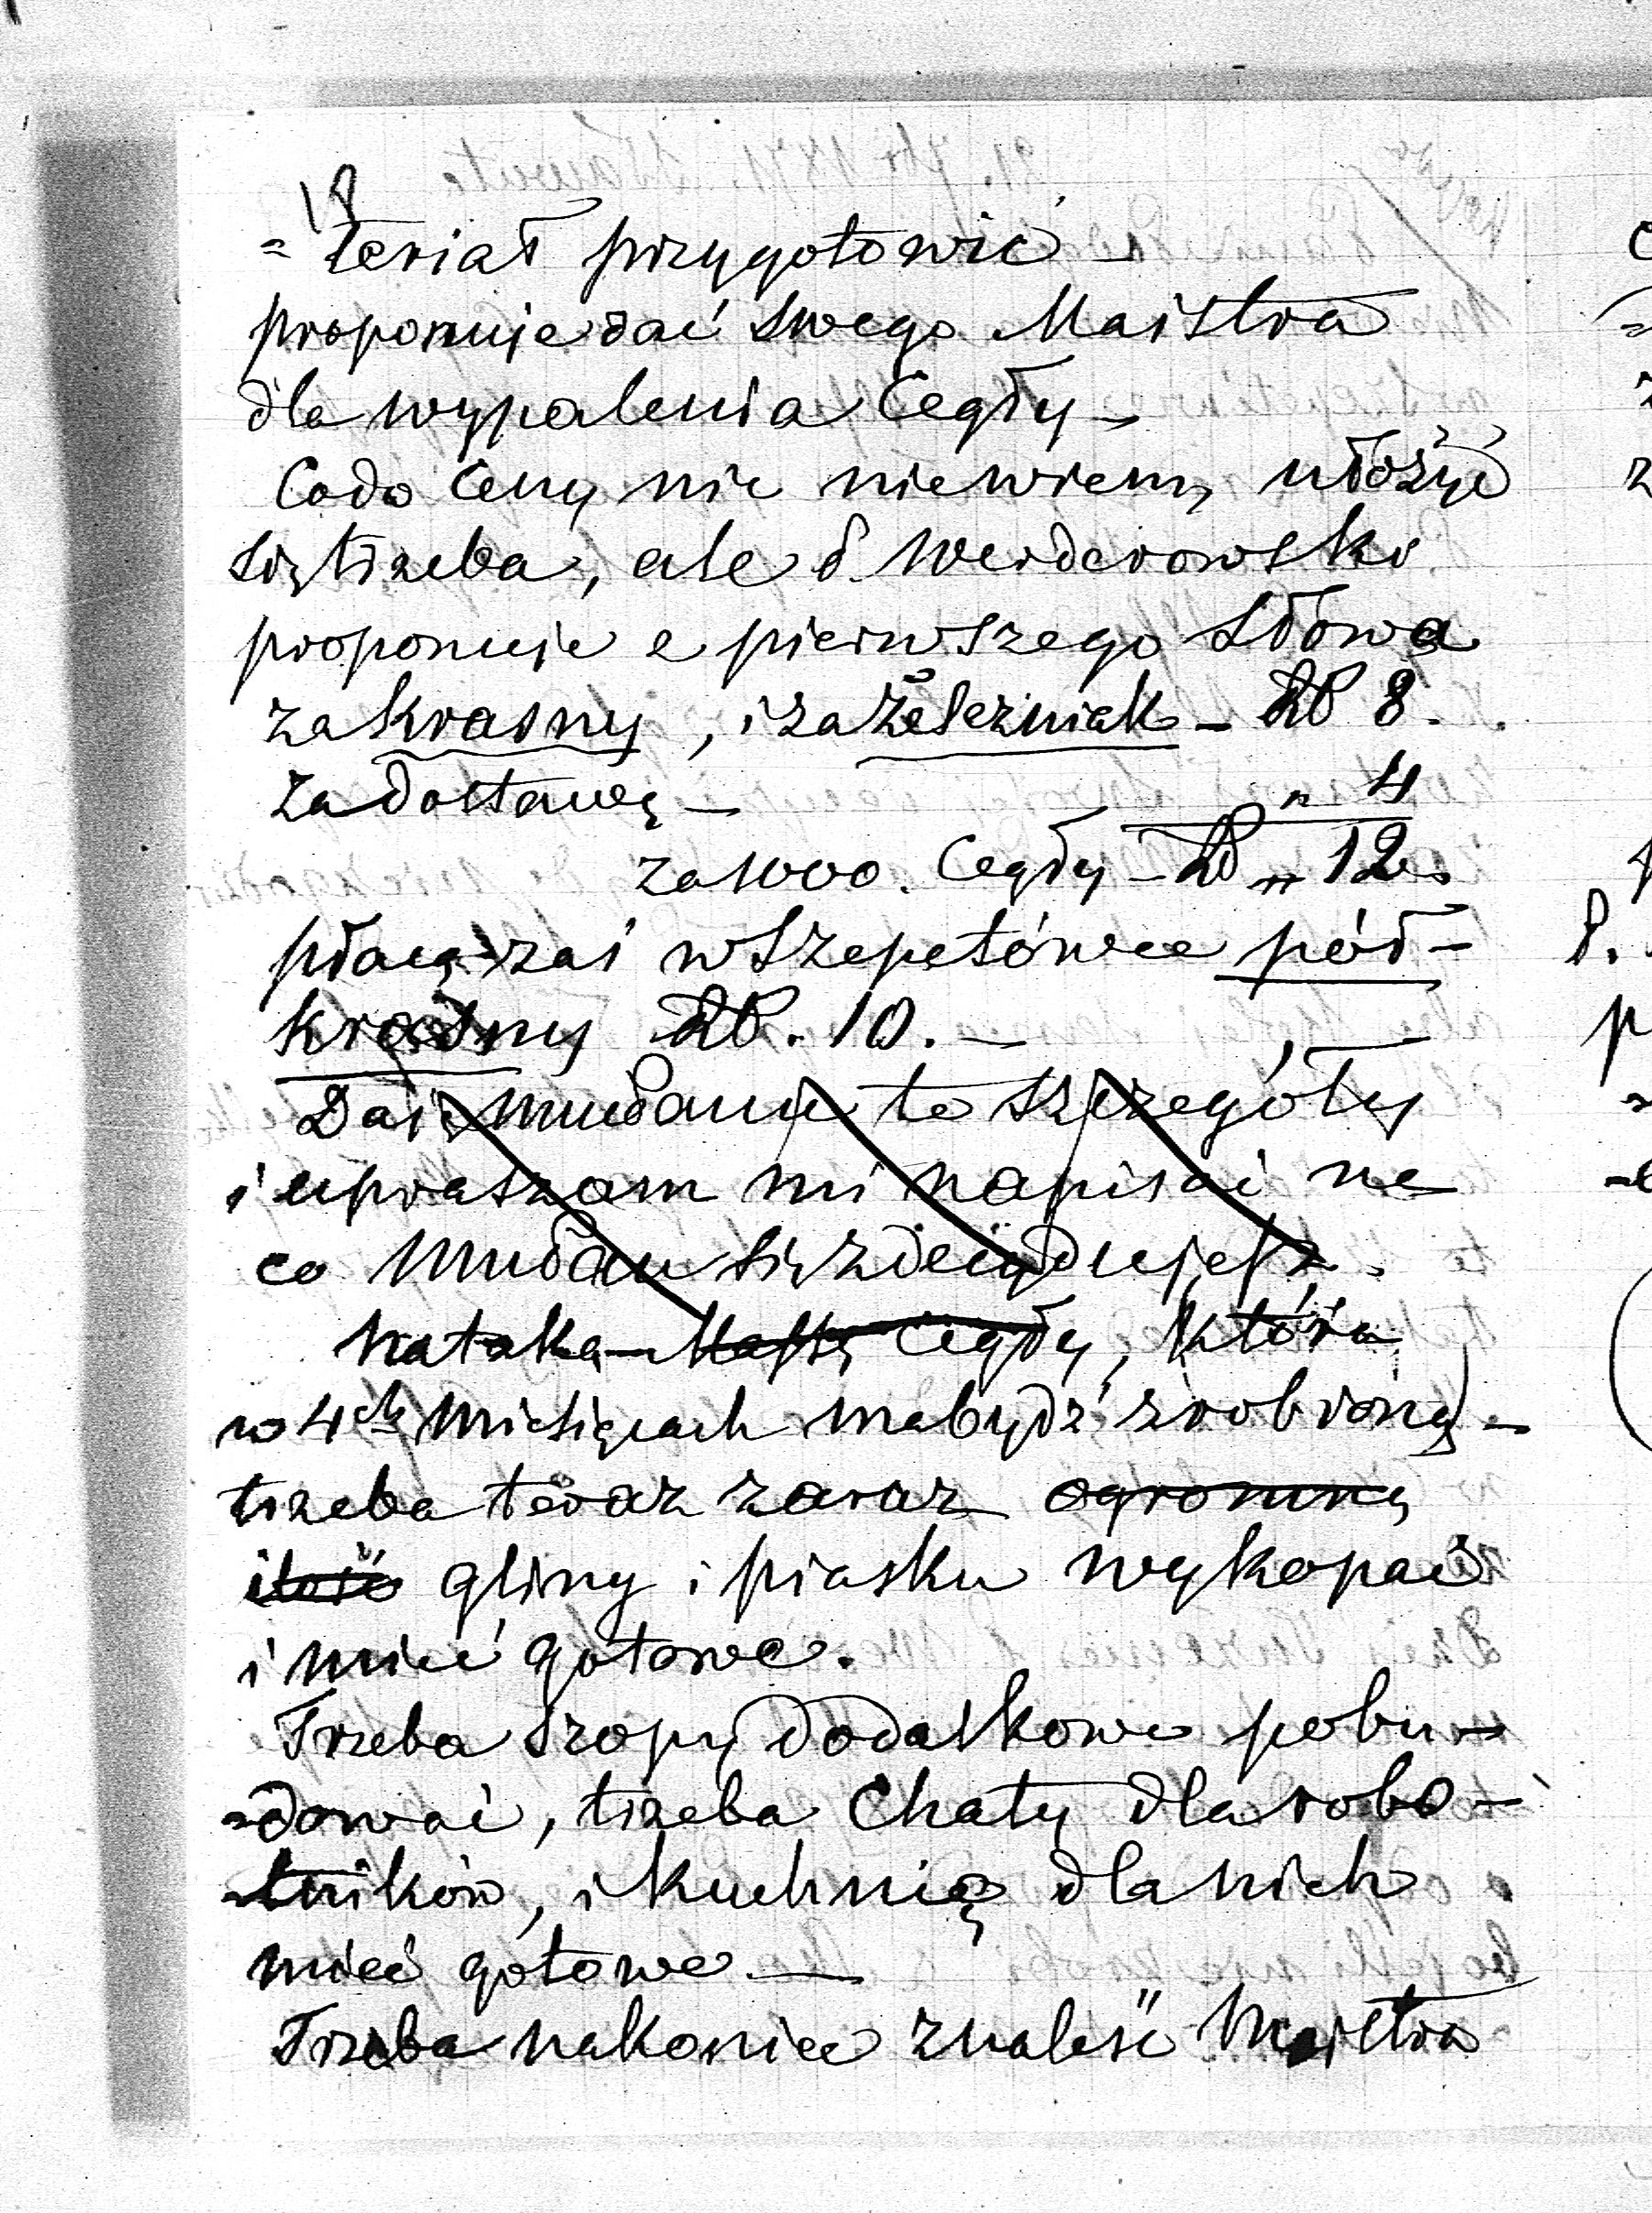 18
= teriał przygotowić –
proponuje dać swego Maistra
dla wypalenia Cegły –
Co do Ceny nic niewiem, ułożyć
się trzeba, ale P. Werderowski
proponuje z pierwszego słowa
za krasny, i za żelezniak – RS 8.
za dostawę – " 4
za 1000. Cegły – RS " 12.
płacą zaś w Szepetówce pół-
krasny RS. 10. –
Daję mu te szczegóły
i upraszam mi napisać na
co się zdecydujesz.
Na taką massę Cegły, która
w 4ch Miesiącach ma bydź zrobioną –
trzeba teraz zaraz ogromną
ilość gliny i piasku wykopać
i mieć gotowe.
Trzeba szopy dodatkowe pobu-
=dować, trzeba Chaty dla robo-
=tników, i kuchnią dla nich
mieć gotowe —
Trzeba nakoniec znaleść Majstra